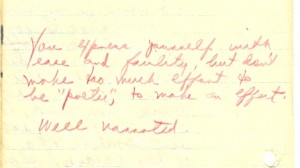 You express yourself with
ease and facility, but don't
make too much effort to
be "poetic," to make an effect.
Well narrated